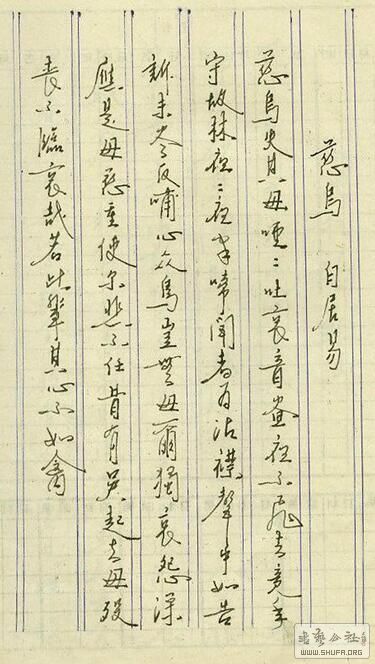 慈烏 白居易
慈烏失其母哑〻吐哀音昼夜不飛去竟年
守故林夜〻夜半啼聞者為沾襟聲中如告
訴未尽反哺心众鳥豈無母爾獨哀怨深
應是母慈重使尔悲不任昔有吳起者母殁
喪不臨哀哉若此輩其心不如禽
書藝公社
WWW.SHUFA.ORG